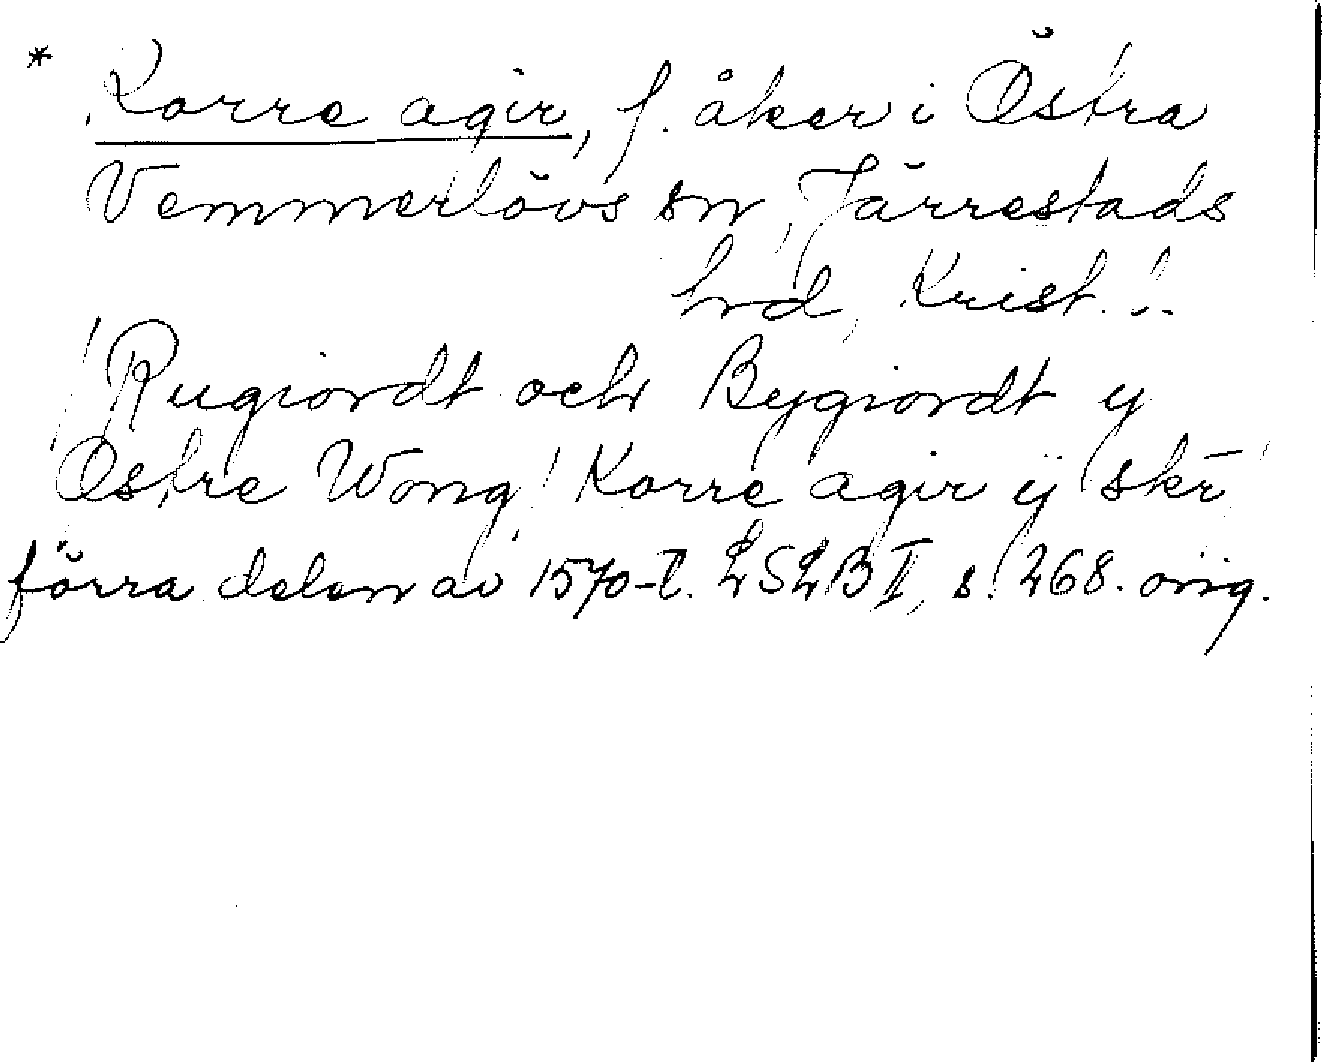 * Korre agir, f. åker i Östra
Vemmerlövs sn, Järrestads
hrd, Krist. l.
/Rugiordt och Bygiordt y
Østre Wong/ Korre agir ÿ skr
förra delen av 1570-t. LSLB II, s. 268. orig.